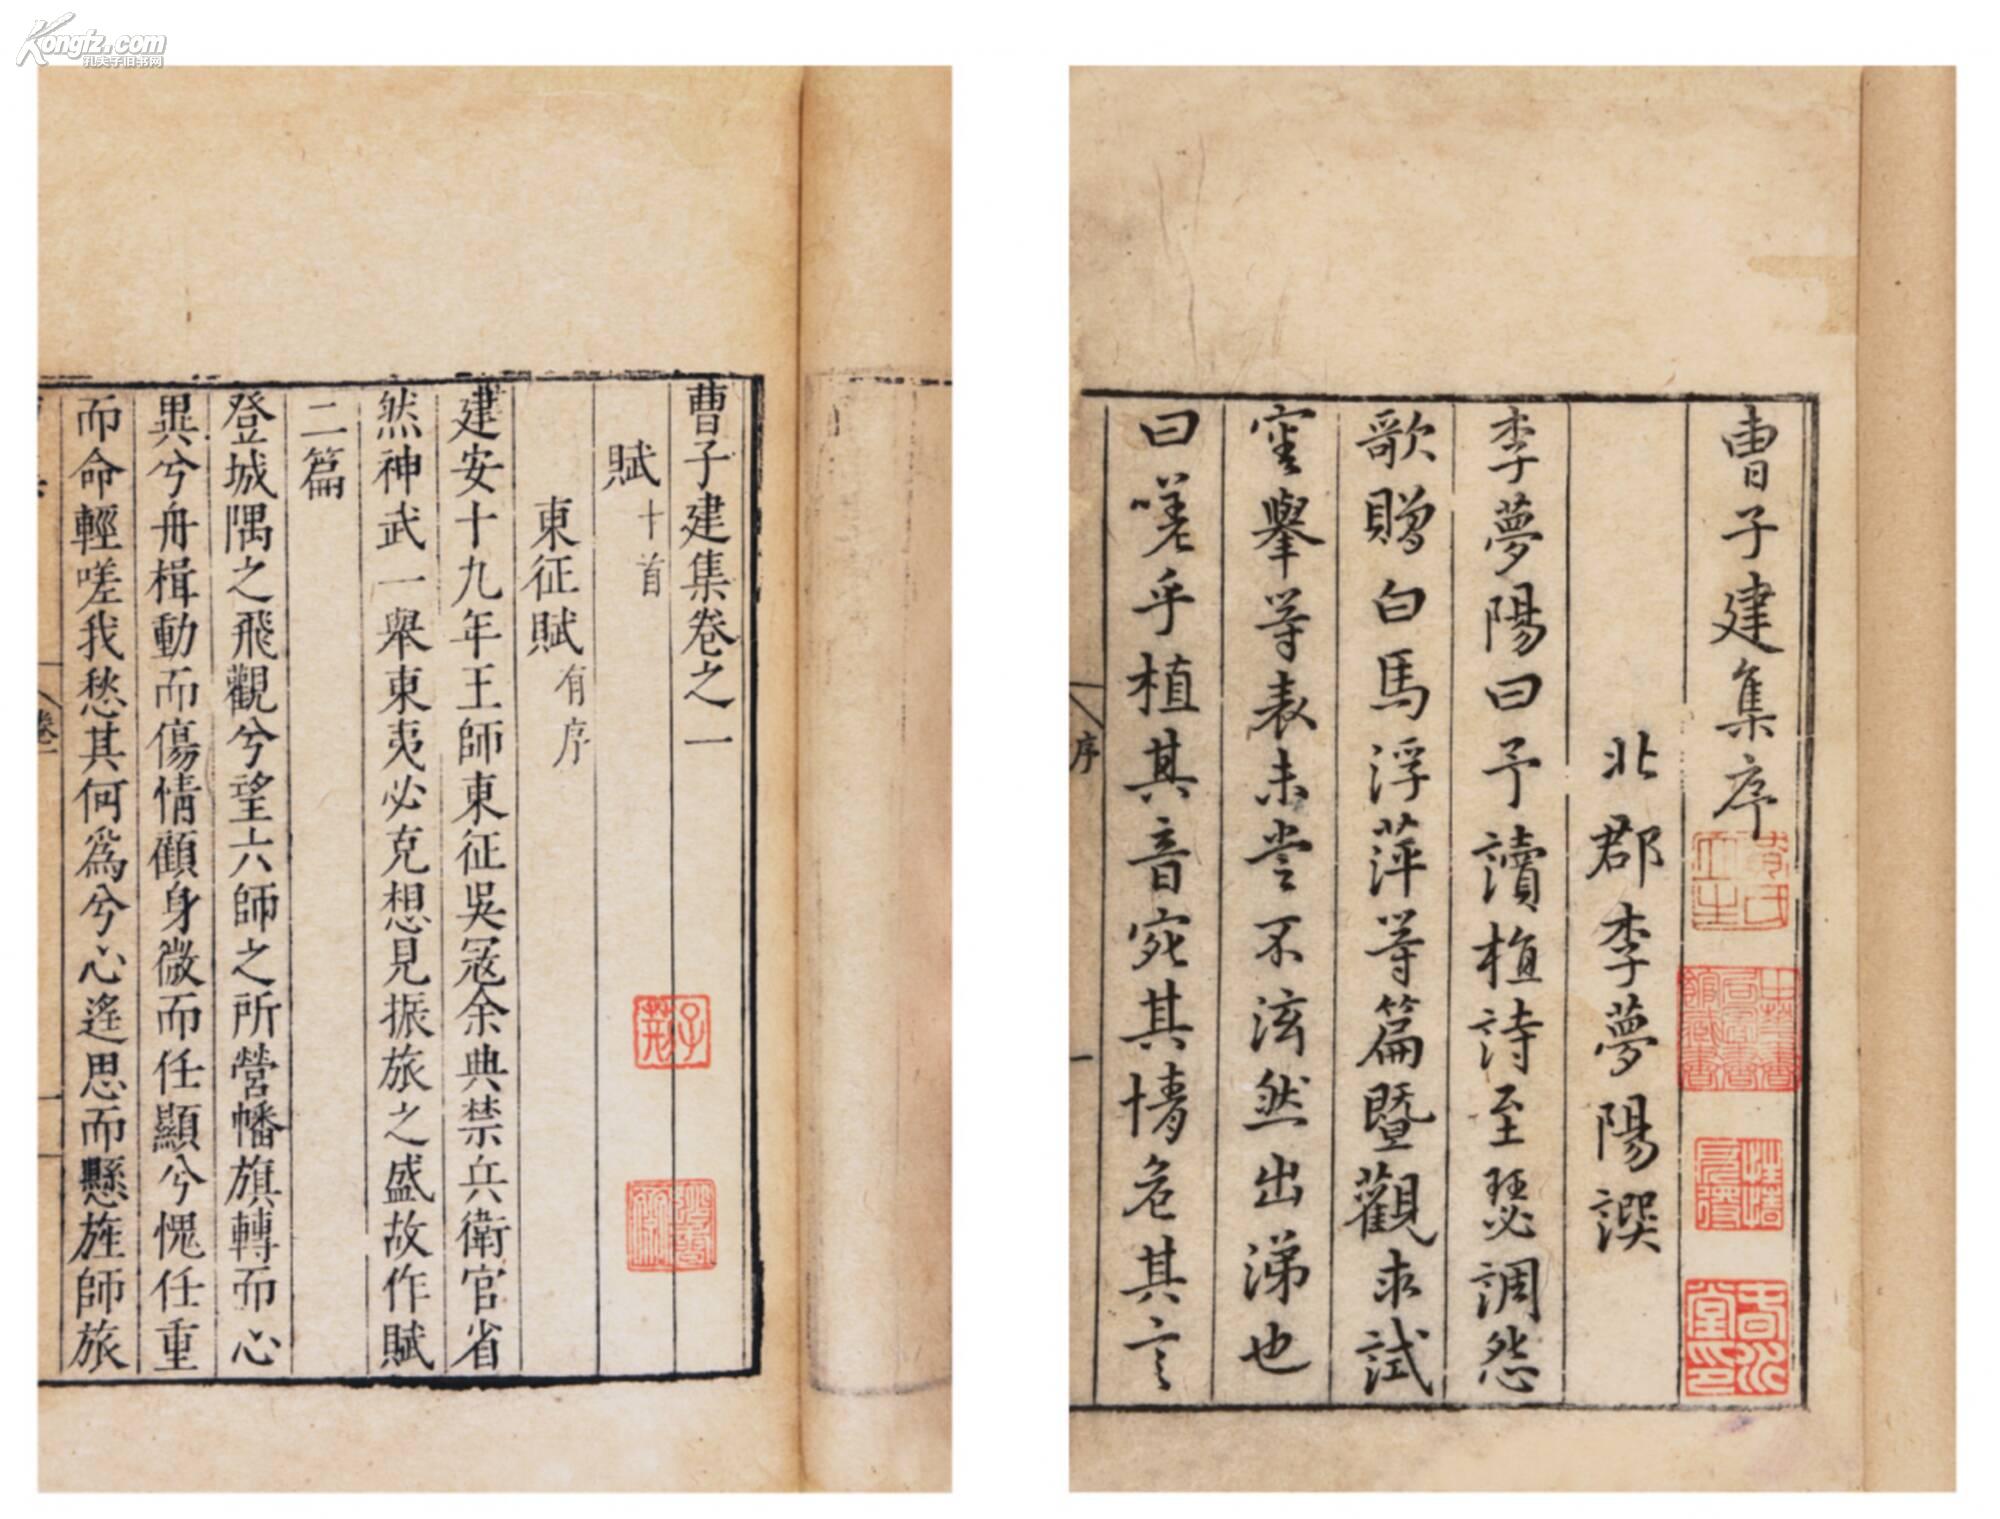 Kongfz.com
孔夫子旧书网
曹子建集序
北郡李夢陽譔
李夢陽曰予讀植詩至瑟調怨
歌贈白馬浮萍等篇暨觀求試
審擧等表未嘗不泫然出涕也
曰嗟乎植其音宛其情危其言
序
一
曹子建集卷之一
賦十首
東征賦有序
建安十九年王師東征吳寇余典禁兵衛官省
然神武一舉東夷必克想見振旅之盛故作賦
二篇
登城隅之飛觀兮望六師之所營幡旗轉而心
異兮舟楫動而傷情顧身微而任顯兮愧任重
而命輕嗟我愁其何爲兮心遙思而懸旌師旅
卷一
一